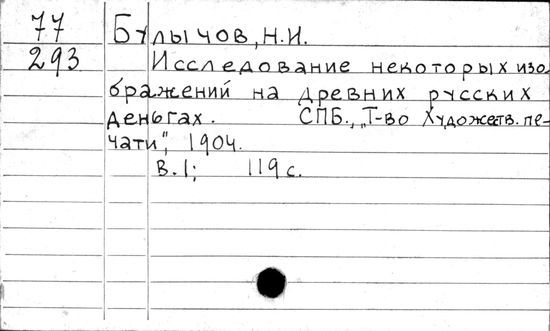 77 Булычов, Н.И.
293 Исследование некоторых изо-
бражений на древних русских
деньгах. СПБ., „Т-во Художеств. пе-
чати", 1904.
В.I; 119 с.